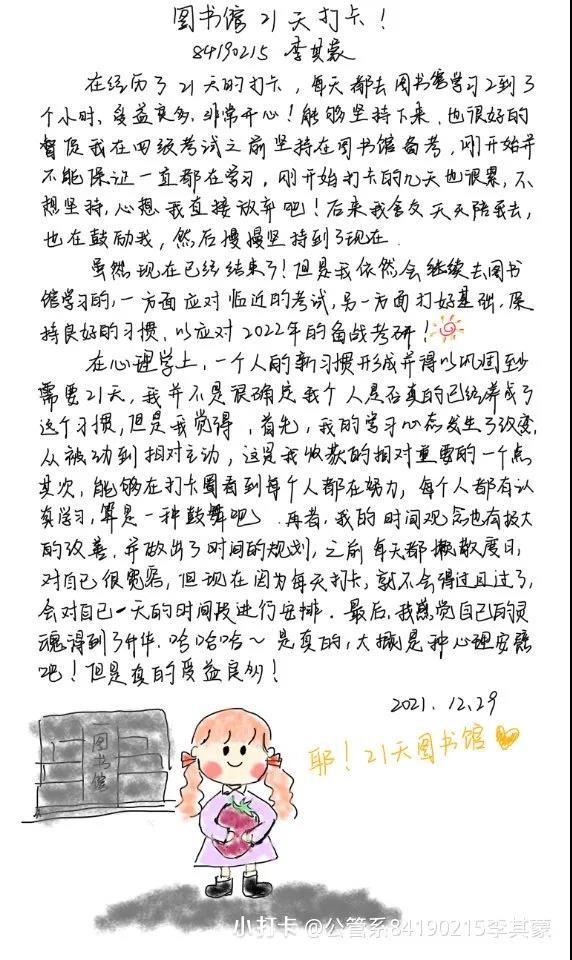 图书馆21天打卡!
84190215 李其蒙
在经历了21天的打卡,每天都去图书馆学习2到3
个小时,受益良多,非常开心!能够坚持下来,也很好的
督促我在四级考试之前坚持在图书馆备考,刚开始并
不能保证一直都在学习,刚开始打卡的几天也很累,不
想坚持,心想我直接放弃吧!后来我舍友天天陪我去,
也在鼓励我,然后慢慢坚持到了现在.
虽然现在已经结束了!但是我依然会继续去图书
馆学习的,一方面应对临近的考试,另一方面打好基础,保
持良好的习惯,以应对2022年的备战考研!
在心理学上,一个人的新习惯形成并得以巩固至少
需要21天,我并不是很确定我个人是否真的已经养成了
这个习惯,但是我觉得,首先,我的学习心态发生了改变,
从被动到相对主动,这是我收获的相对重要的一个点
其次,能够在打卡圈看到每个人都在努力,每个人都有认
真学习,算是一种鼓舞吧.再者,我的时间观念也有较大
的改善,并做出了时间的规划,之前每天都懒散度日,
对自己很宽容,但现在因为每天打卡,就不会得过且过了,
会对自己一天的时间段进行安排.最后,我感觉自己的灵
魂得到了升华.哈哈哈~是真的,大概是种心理安慰
吧!但是真的受益良多!
2021.12.29
耶!21天图书馆
图书馆
小打卡 @公管系84190215李其蒙